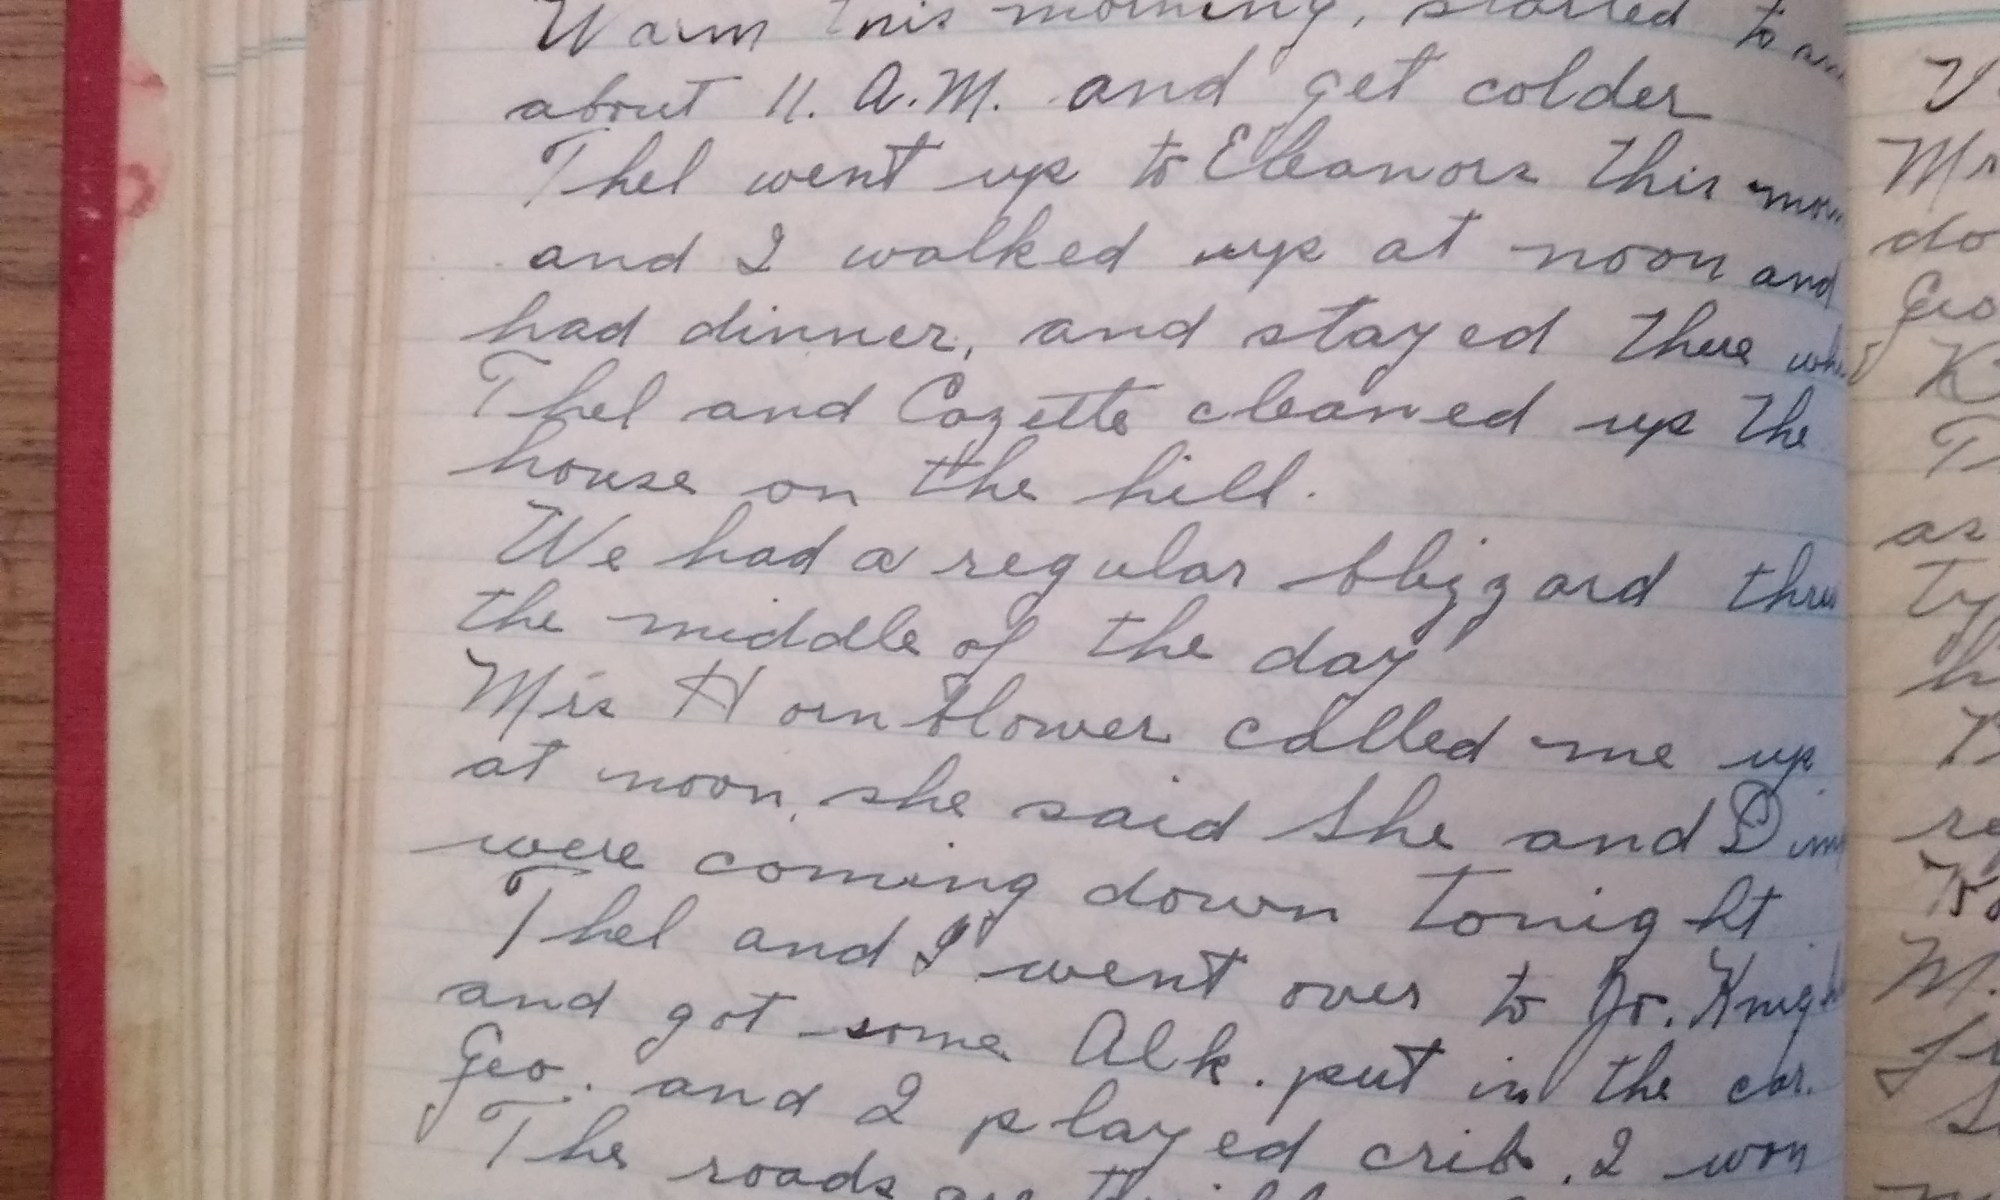 Warm this morning, started to
about 11. A.M. and get colder
Thel went up to Eleanors this
and I walked up at noon and
had dinner, and stayed there
Thel and Cozette cleaned up the
house on the hill.
We had a regular blizzard thru
the middle of the day
Mrs Hornblower called me up
at noon, she said she and
were coming down tonight
Thel and I went over to Jr.
and got some Alk. put in the car.
Geo. and I played crib. I won
The roads are
Mr
do
Geo
as
ty
M.